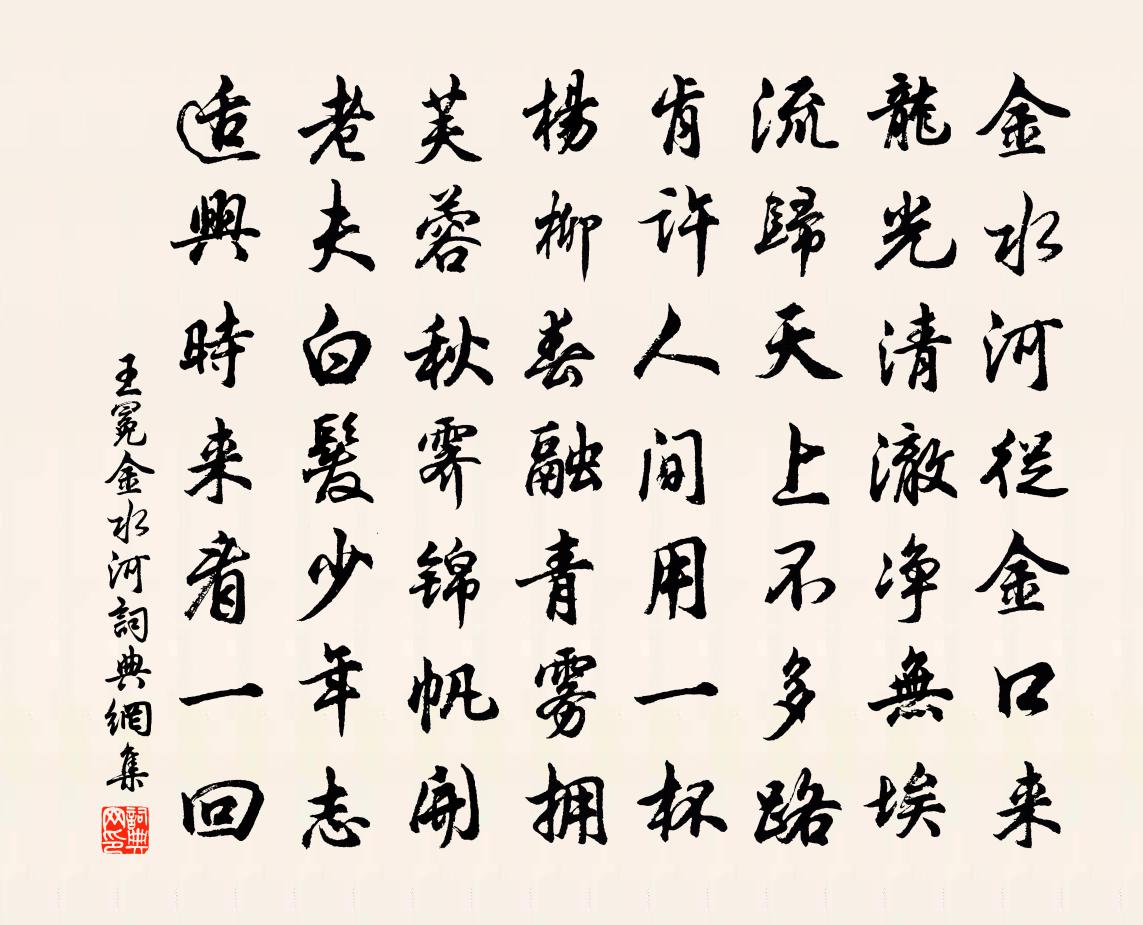 金水河從金口来
龍光清澈净無埃
流歸天上不多路
肯許人間用一杯
楊柳春融青雾拥
芙蓉秋霽錦帆開
老夫白髮少年志
适興時来看一回
王冕金水河詞典網集
詞典網印